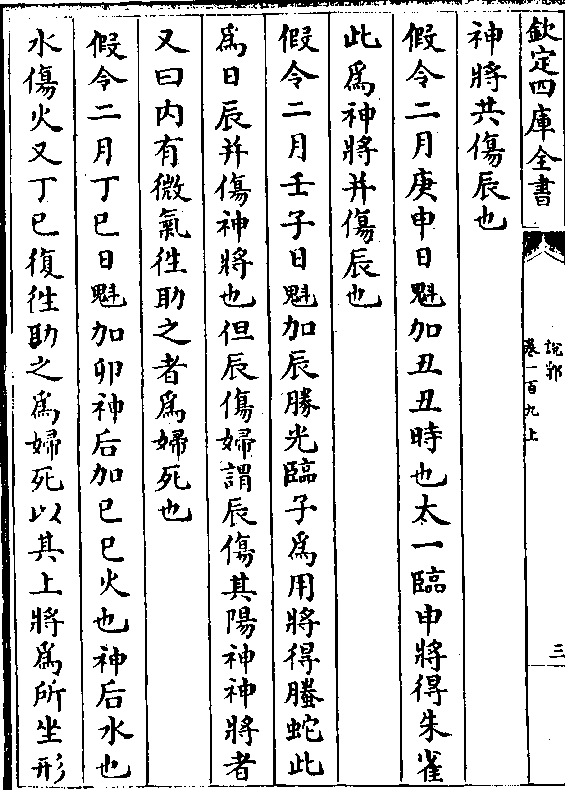 欽定四庫全書
說郛
卷一百九上
三
神將共傷辰也
假令二月庚申日魁加丑丑時也太一臨申將得朱雀
此為神將并傷辰也
假令二月壬子日魁加辰勝光臨子為用將得螣蛇此
為日辰并傷神將也但辰傷婦謂辰傷其陽神神將者
又曰内有微氣徃助之者為婦死也
假令二月丁巳日魁加卯神后加巳巳火也神后水也
水傷火又丁巳復徃助之為婦死以其上將為所坐形